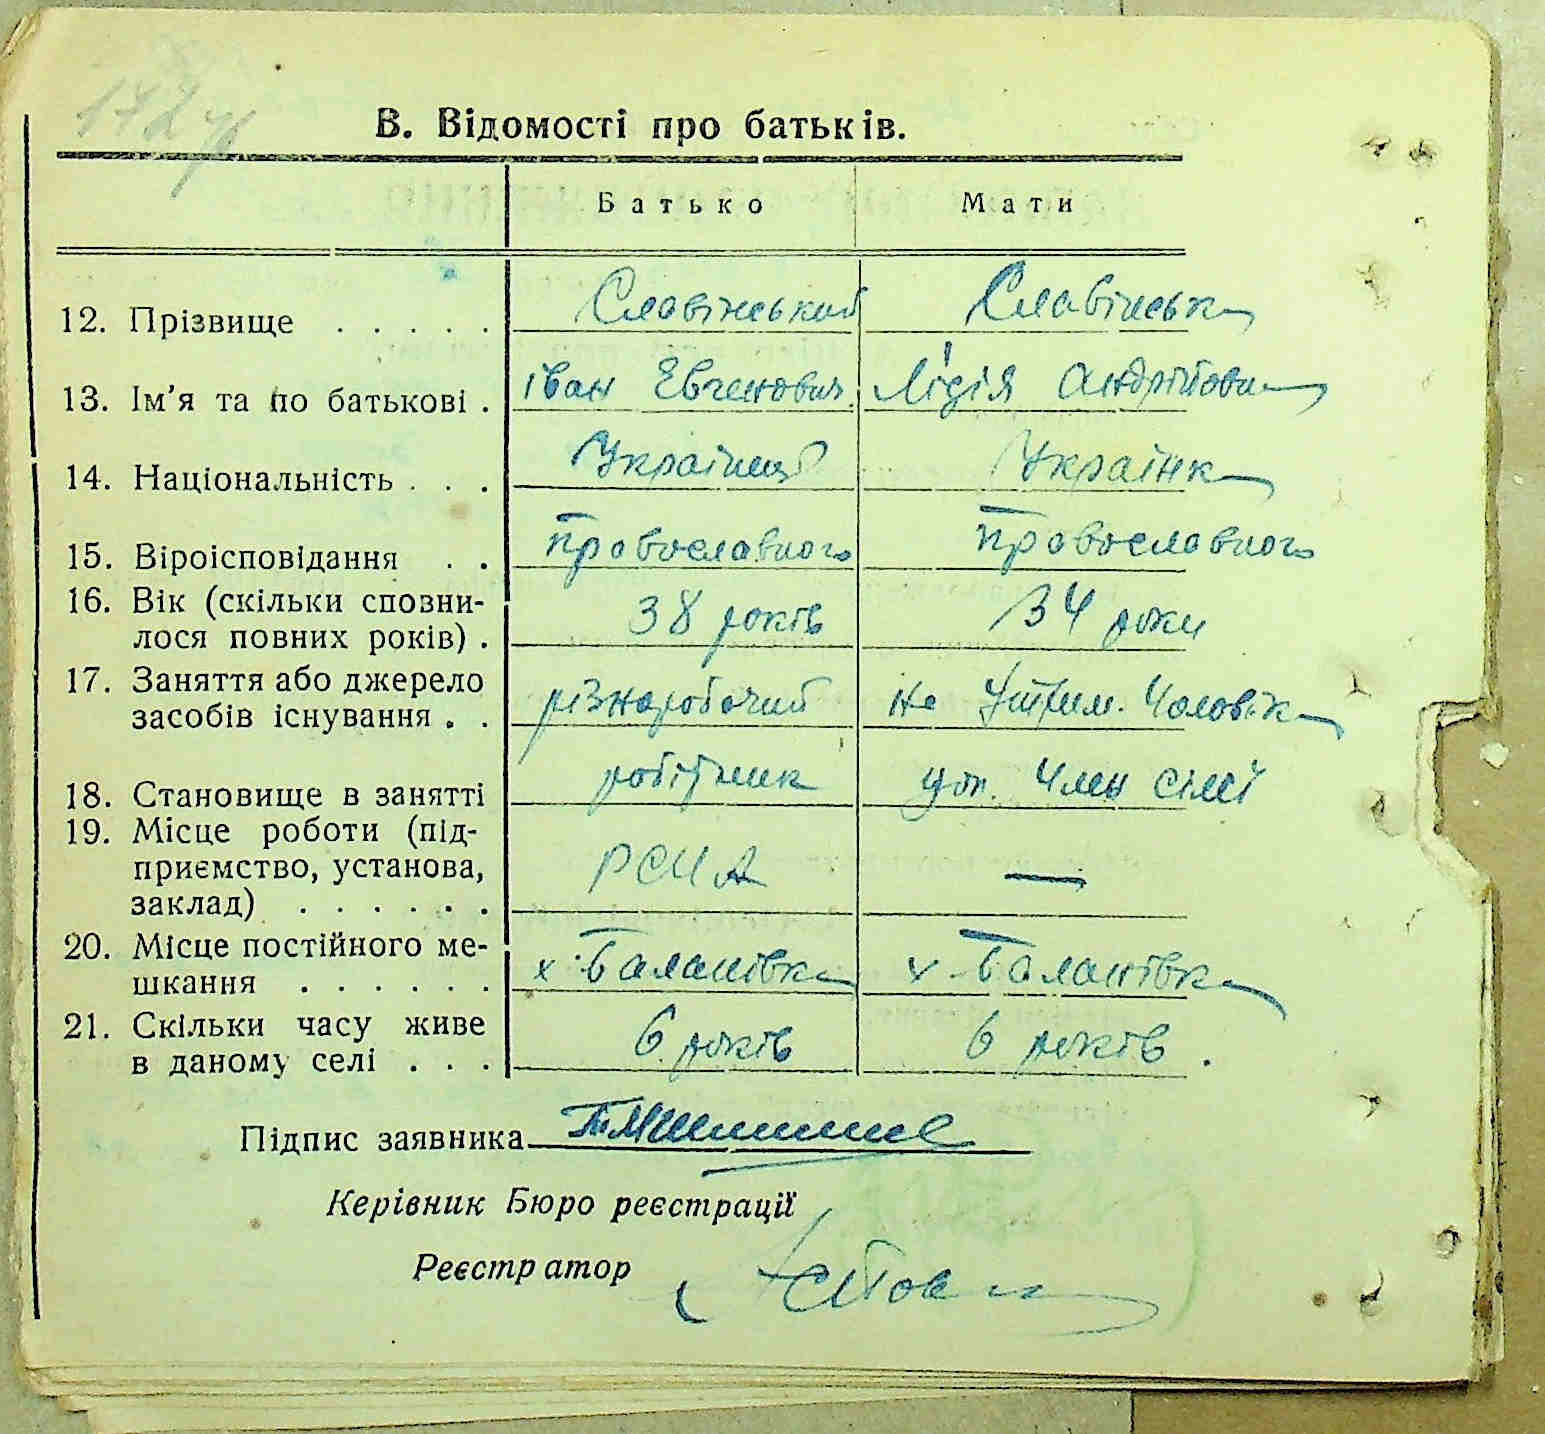 В. Відомості про батьків.
Батько Мати
12. Прізвище . . . . . Славінський Славінська
13. Ім'я та по батькові . іван Евгенович Лідія Андрійовна
14. Національність . . . Українець Українка
15. Віроісповідання . . Православного Православного
16. Вік (скільки сповни-
лося повних років) . 38 років 34 роки
17. Заняття або джерело
засобів існування . . різноробочий на утрим. Чоловіка
18. Становище в занятті робітник Член сімї
19. Місце роботи (під-
приємство, установа,
заклад) . . . . . . РСЧА —
20. Місце постійного ме-
шкання . . . . . . х. Баланівка х. Баланівка
21. Скільки часу живе
в даному селі . . . 6 років 6 років.
Підпис заявника
Керівник Бюро реєстрації
Реєстратор